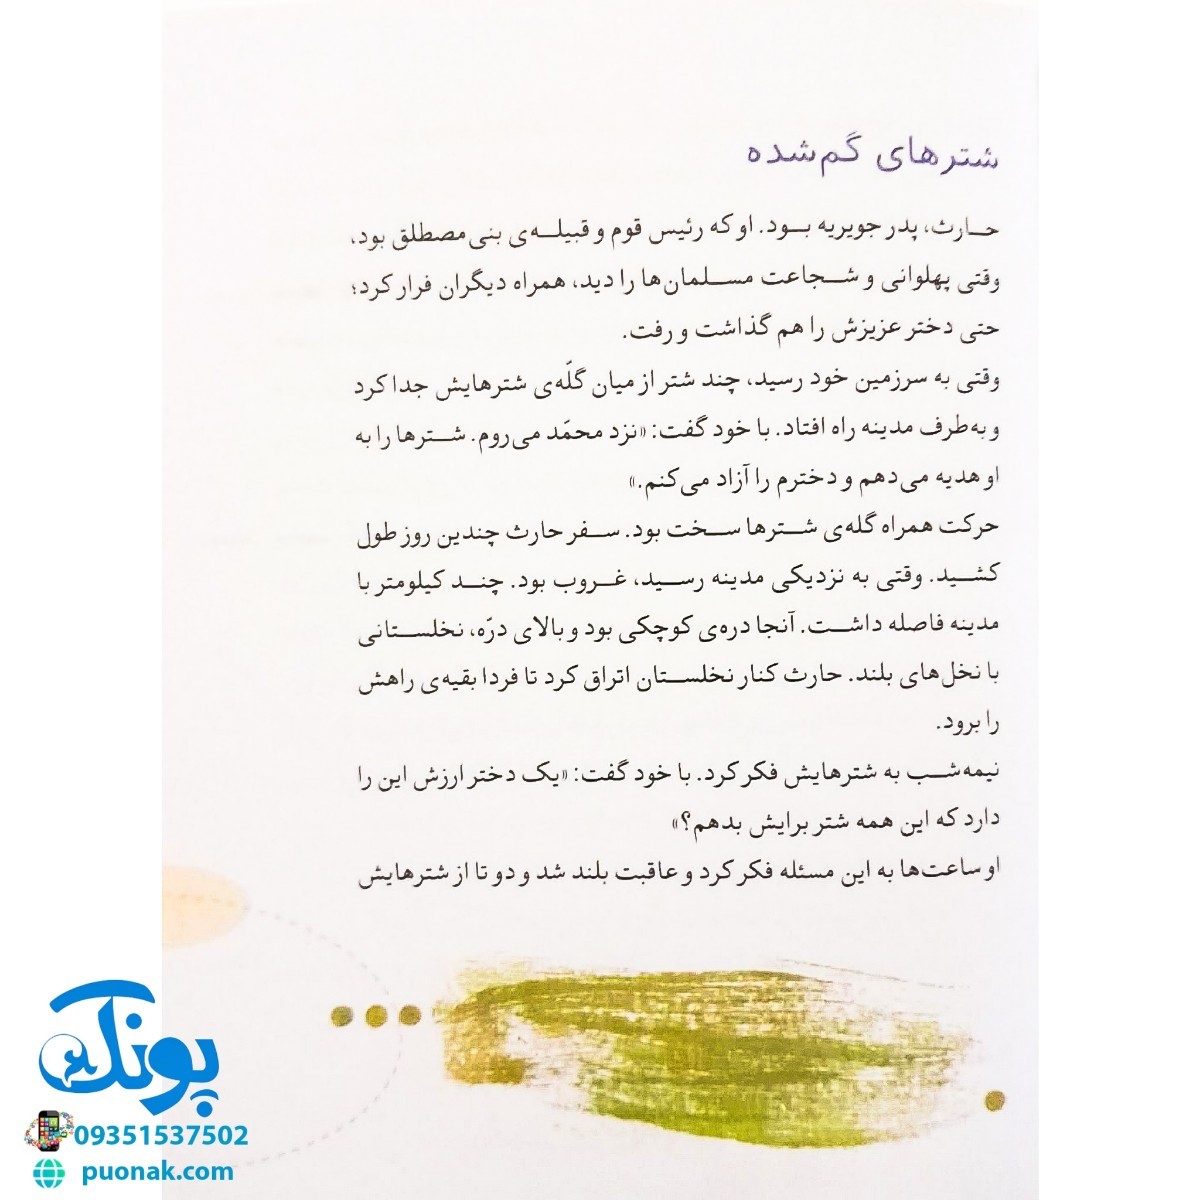 شترهای گم‌شده
حارث، پدر جویریه بود. او که رئیس قوم و قبیله‌ی بنی‌مصطلق بود،
وقتی پهلوانی و شجاعت مسلمان‌ها را دید، همراه دیگران فرار کرد؛
حتی دختر عزیزش را هم گذاشت و رفت.
وقتی به سرزمین خود رسید، چند شتر از میان گلّه‌ی شترهایش جدا کرد
و به‌طرف مدینه راه افتاد. با خود گفت: «نزد محمّد می‌روم. شترها را به
او هدیه می‌دهم و دخترم را آزاد می‌کنم.»
حرکت همراه گله‌ی شترها سخت بود. سفر حارث چندین روز طول
کشید. وقتی به نزدیکی مدینه رسید، غروب بود. چند کیلومتر با
مدینه فاصله داشت. آنجا دره‌ی کوچکی بود و بالای درّه، نخلستانی
با نخل‌های بلند. حارث کنار نخلستان اتراق کرد تا فردا بقیه‌ی راهش
را برود.
نیمه‌شب به شترهایش فکر کرد. با خود گفت: «یک دختر ارزش این را
دارد که این همه شتر برایش بدهم؟»
او ساعت‌ها به این مسئله فکر کرد و عاقبت بلند شد و دو تا از شترهایش
پونک
09351537502
puonak.com